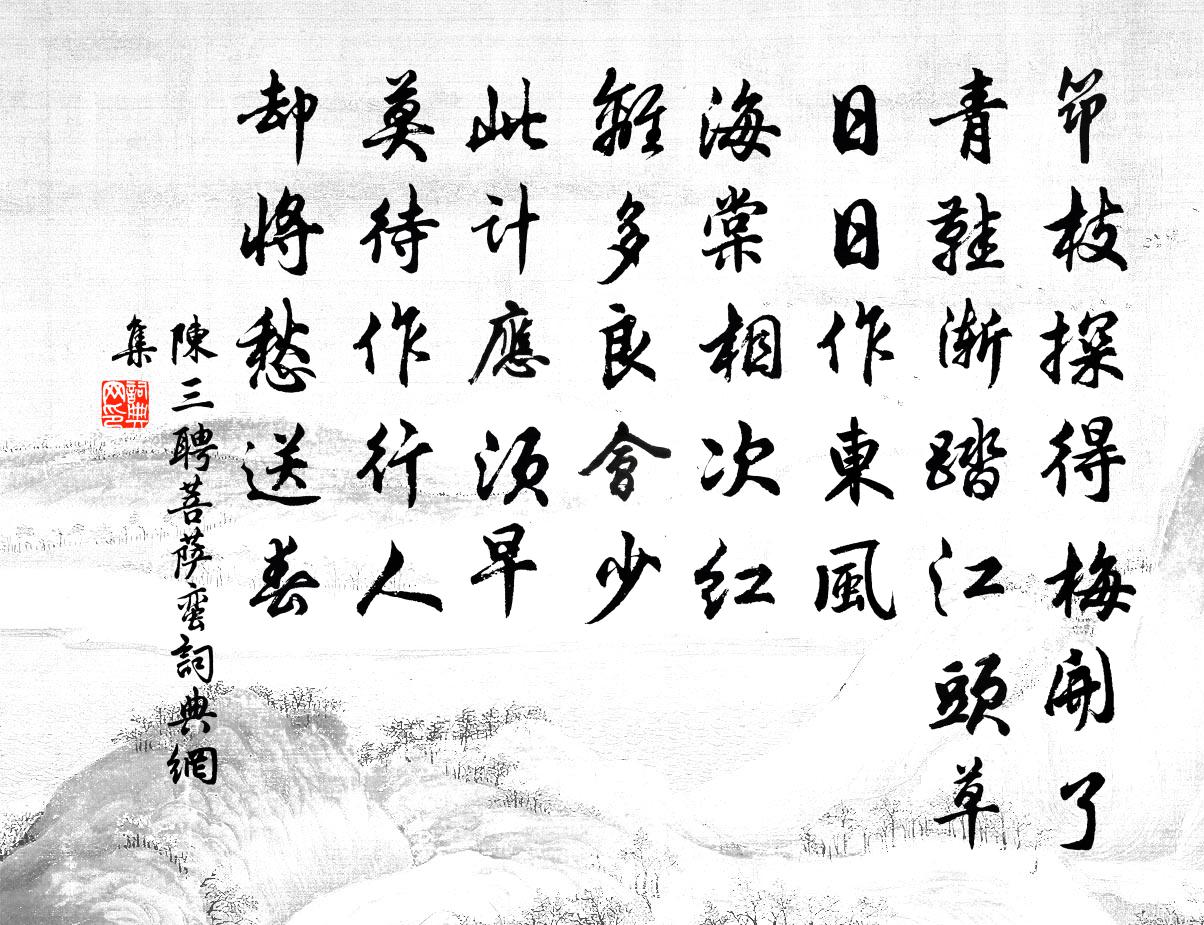 筇枝探得梅開了
青鞋漸踏江頭草
日日作東風
海棠相次紅
離多良會少
此計應須早
莫待作行人
却將愁送春
陳三聘菩薩蠻詞典網
集
詞典網印